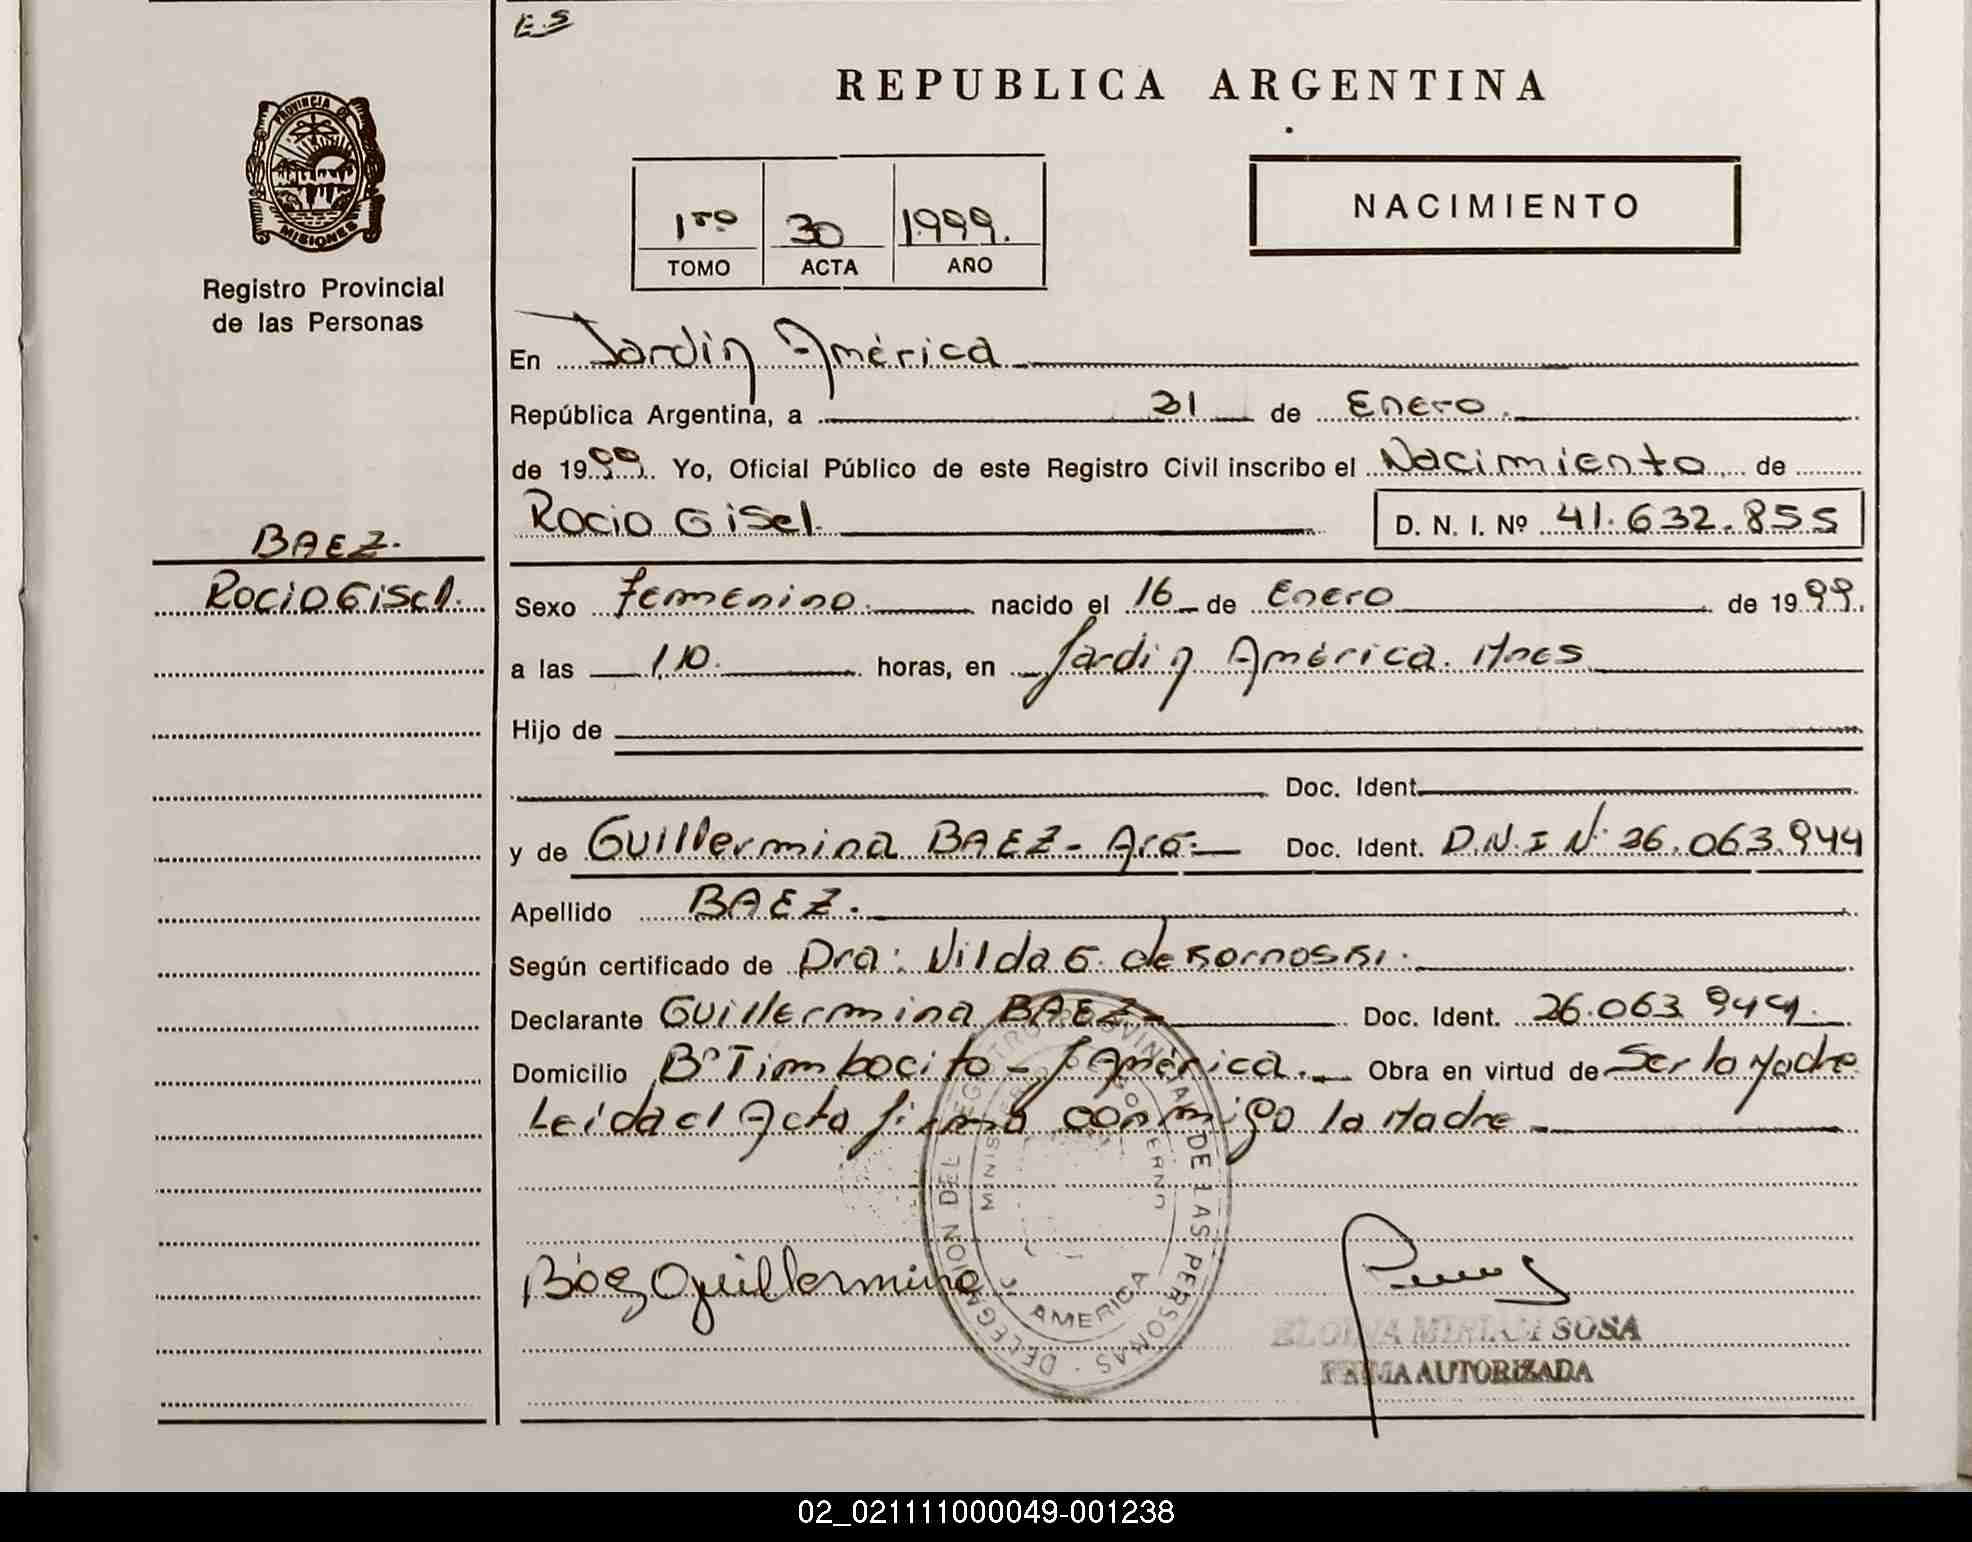 E.S
REPUBLICA ARGENTINA
PROVINCIA DE
MISIONES
Registro Provincial
de las Personas
1ro 30 1999.
TOMO ACTA AÑO
NACIMIENTO
En Jardin América
República Argentina, a 21 de Enero.
de 1999. Yo, Oficial Público de este Registro Civil inscribo el Nacimiento de
Rocio Gisel. D. N. I. Nº 41.632.855
BAEZ.
Rocio Gisel.
Sexo Femenino. nacido el 16 de Enero de 1999.
a las 1,10. horas, en Jardin América. Mnes
Hijo de
Doc. Ident.
y de Guillermina BAEZ - Arg.- Doc. Ident. D.N.I Nº 26.063.944
Apellido BAEZ.
Según certificado de Dra: Nilda G. de
Declarante Guillermina BAEZ- Doc. Ident. 26.063.944.
Domicilio Bº Timbocito - J América. Obra en virtud de Ser la Madre
Leida el Acta firma conmigo la Madre
DELEGACION DEL REGISTRO PROVINCIAL DE LAS PERSONAS
AMERICA
Báez Guillermina
MIRIAM SOSA
FIRMA AUTORIZADA
02_021111000049-001238